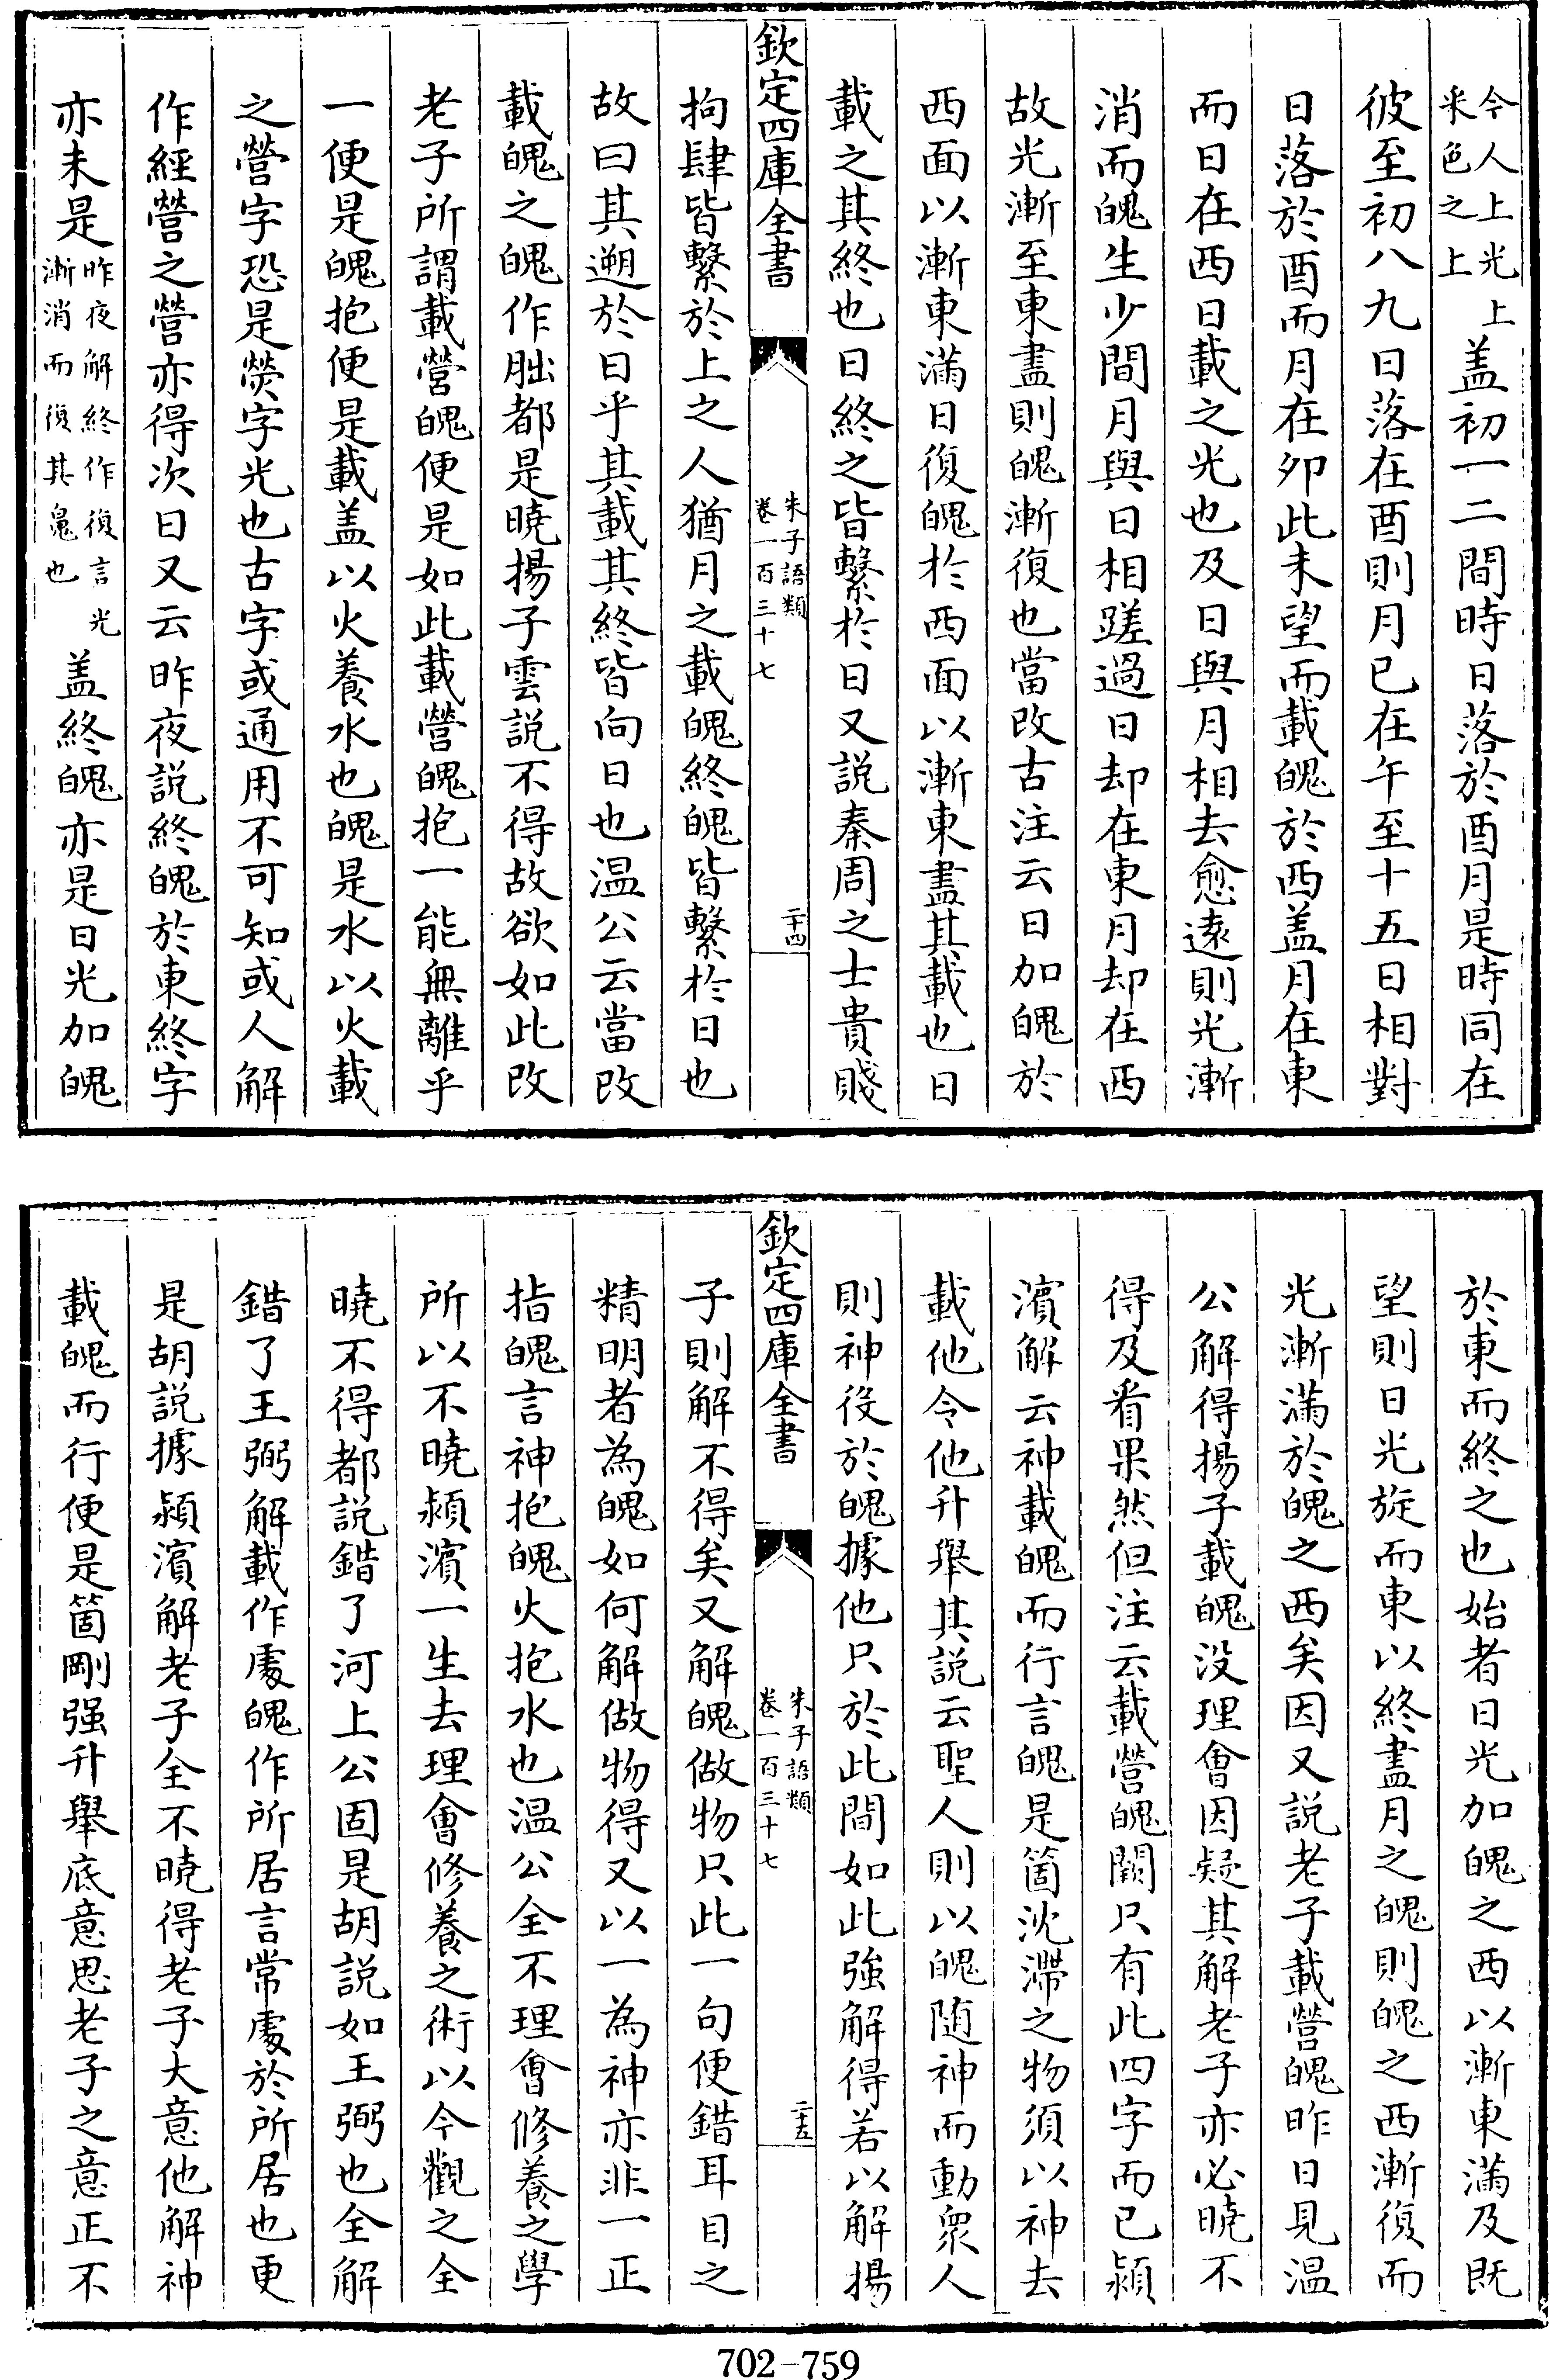 今人上光上
采色之上
盖初一二間時日落於酉月是時同在
彼至初八九日落在酉則月已在午至十五日相對
日落於酉而月在卯此未望而載魄於西盖月在東
而日在西日載之光也及日與月相去愈遠則光漸
消而魄生少間月與日相蹉過日却在東月却在西
故光漸至東盡則魄漸復也當改古注云日加魄於
西面以漸東滿日復魄於西面以漸東盡其載也日
載之其終也日終之皆繫於日又説秦周之士貴賤
欽定四庫全書
朱子語類
卷一百三十七
二十四
拘肆皆繫於上之人猶月之載魄終魄皆繫於日也
故曰其遡於日乎其載其終皆向日也温公云當改
載魄之魄作朏都是曉揚子雲説不得故欲如此改
老子所謂載營魄便是如此載營魄抱一能無離乎
一便是魄抱便是載盖以火養水也魄是水以火載
之營字恐是熒字光也古字或通用不可知或人解
作經營之營亦得次日又云昨夜説終魄於東終字
亦未是
昨夜解終作復言光
漸消而復其魄也
盖終魄亦是日光加魄
於東而終之也始者日光加魄之西以漸東滿及既
望則日光旋而東以終盡月之魄則魄之西漸復而
光漸滿於魄之西矣因又説老子載營魄昨日見温
公解得揚子載魄没理會因疑其解老子亦必曉不
得及看果然但注云載營魄闕只有此四字而已潁
濱解云神載魄而行言魄是箇沈滯之物須以神去
載他令他升舉其説云聖人則以魄随神而動衆人
則神役於魄據他只於此間如此強解得若以解揚
欽定四庫全書
朱子語類
卷一百三十七
二十五
子則解不得矣又解魄做物只此一句便錯耳目之
精明者為魄如何解做物得又以一為神亦非一正
指魄言神抱魄火抱水也温公全不理會修養之學
所以不曉潁濱一生去理會修養之術以今觀之全
曉不得都説錯了河上公固是胡説如王弼也全解
錯了王弼解載作處魄作所居言常處於所居也更
是胡説據潁濱解老子全不曉得老子大意他解神
載魄而行便是箇剛强升舉底意思老子之意正不
702-759